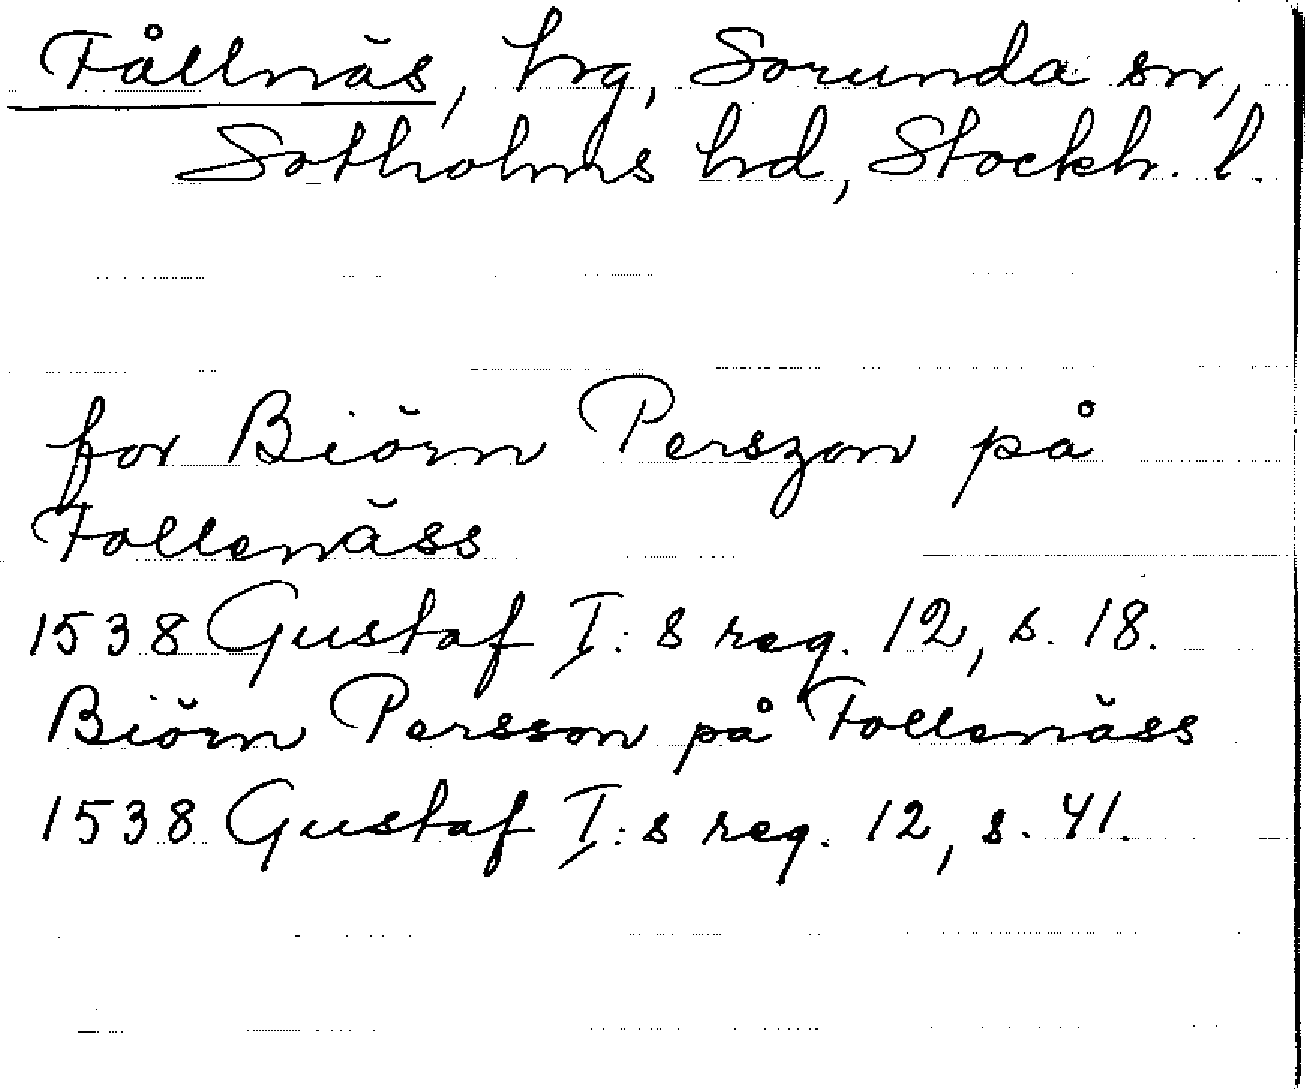 Fållnäs, hrg, Sorunda sn,
Sotholms hd, Stockh. l.
for Biörn Perszon på
Follenäss
1538 Gustaf I:s reg. 12, s. 18.
Biörn Persson på Follenäss
1538 Gustaf I:s reg. 12, s. 41.